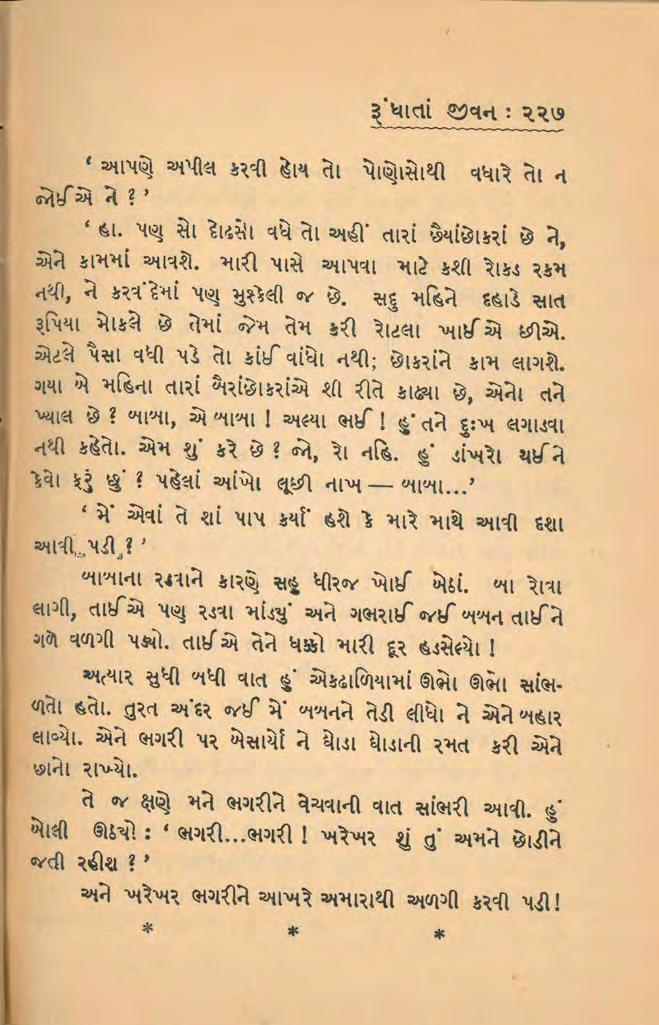 રૂંધાતાં જીવન : ૨૨૭
‘ આપણે અપીલ કરવી હોય તો પોણોસોથી વધારે તો ન
જોઈએ ને ? ’
‘ હા. પણ સો દોઢસો વધે તો અહીં તારાં છૈયાંછોકરાં છે ને,
એને કામમાં આવશે. મારી પાસે આપવા માટે કશી રોકડ રકમ
નથી, ને કરવંદેમાં પણ મુશ્કેલી જ છે. સદુ મહિને દહાડે સાત
રૂપિયા મોકલે છે તેમાં જેમ તેમ કરી રોટલા ખાઈએ છીએ.
એટલે પૈસા વધી પડે તો કાંઈ વાંધો નથી; છોકરાંને કામ લાગશે.
ગયા બે મહિના તારાં બૈરાંછોકરાંએ શી રીતે કાઢ્યા છે, એનો તને
ખ્યાલ છે ? બાબા, એ બાબા ! અલ્યા ભઈ ! હું તને દુઃખ લગાડવા
નથી કહેતો. એમ શું કરે છે ? જો, રો નહિ. હું ડાંખરો થઈને
કેવો ફરું છું ? પહેલાં આંખો લૂછી નાખ — બાબા...’
‘ મેં એવાં તે શાં પાપ કર્યાં હશે કે મારે માથે આવી દશા
આવી પડી ? ’
બાબાના રડવાને કારણે સહુ ધીરજ ખોઈ બેઠાં. બા રોવા
લાગી, તાઈએ પણ રડવા માંડ્યું અને ગભરાઈ જઈ બબન તાઈને
ગળે વળગી પડ્યો. તાઈએ તેને ધક્કો મારી દૂર હડસેલ્યો !
અત્યાર સુધી બધી વાત હું એકઢાળિયામાં ઊભો ઊભો સાંભ-
ળતો હતો. તુરત અંદર જઈ મેં બબનને તેડી લીધો ને એને બહાર
લાવ્યો. એને ભગરી પર બેસાર્યો ને ઘોડા ઘોડાની રમત કરી એને
છાનો રાખ્યો.
તે જ ક્ષણે મને ભગરીને વેચવાની વાત સાંભરી આવી. હું
બોલી ઊઠ્યો : ‘ ભગરી...ભગરી ! ખરેખર શું તું અમને છોડીને
જતી રહીશ ? ’
અને ખરેખર ભગરીને આખરે અમારાથી અળગી કરવી પડી !
* * *